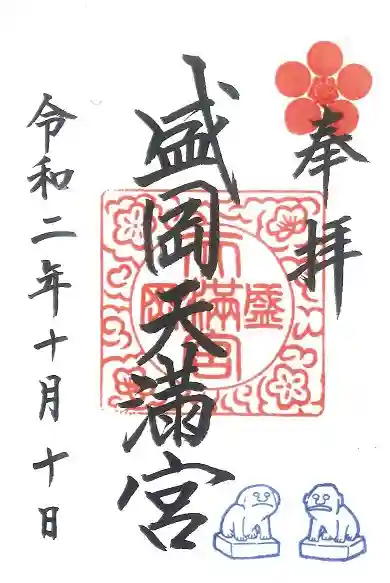 奉拝
盛岡天満宮
令和二年十月十日
盛岡天満宮